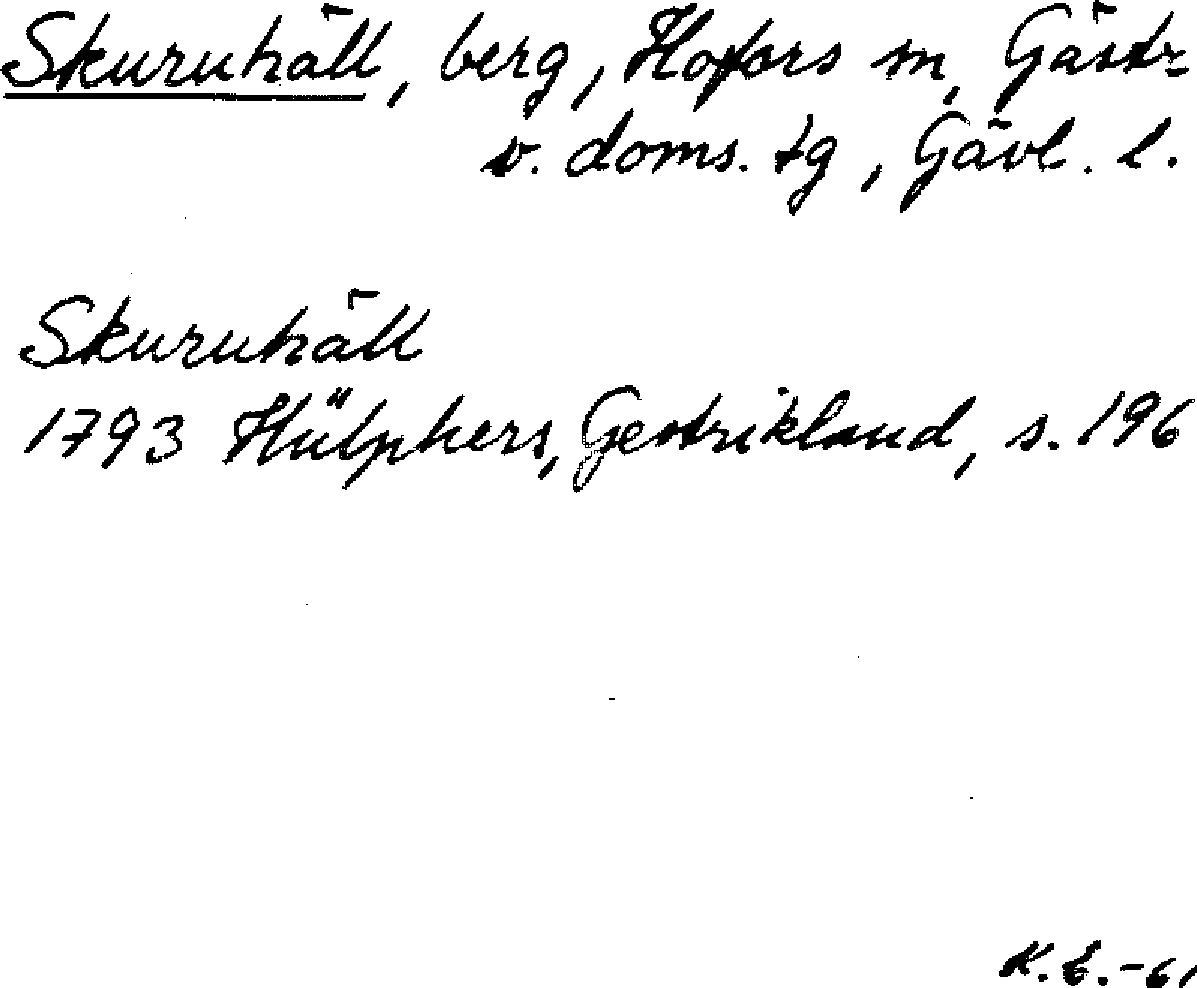 Skuruhäll, berg, Hofors sn, Gästr.
v. doms. tg, Gävl. l.
Skuruhäll
1793 Hülphers, Gestrikland, s. 196
K.E.-61